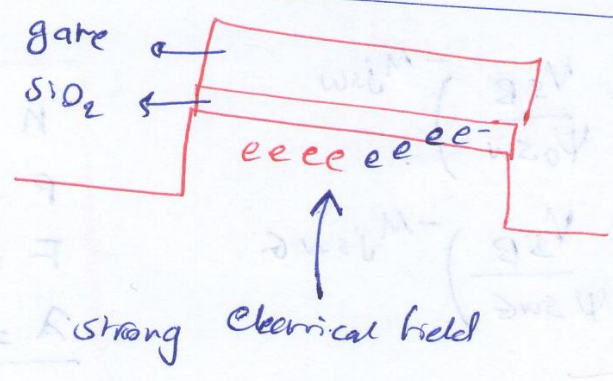 gate
SiO2
eeee ee ee-
strong electrical field